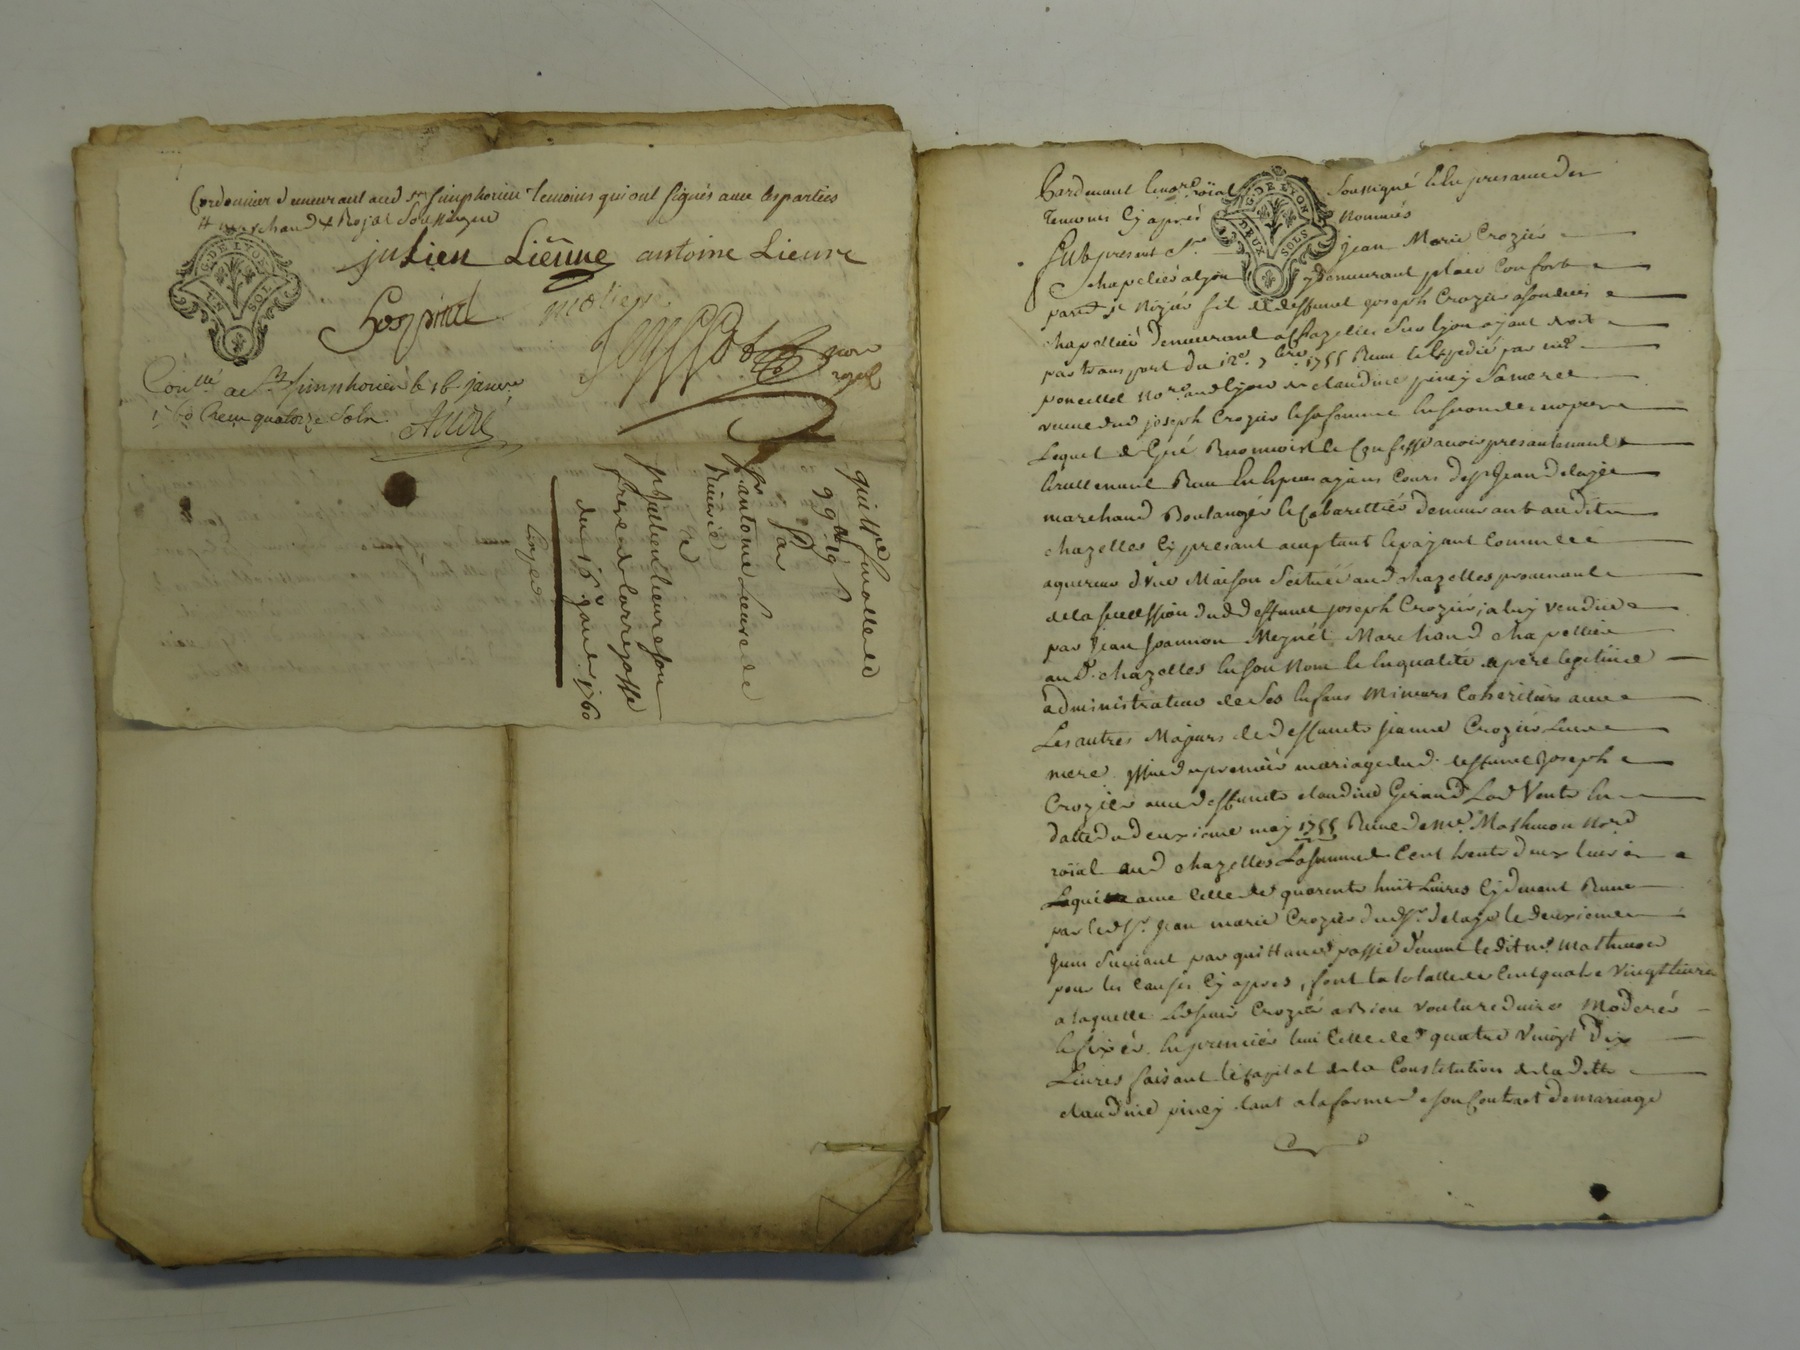 Cordonnier demeurant aud St Simphorien temoins qui ont signés avec les parties
# marchand & Rojal Soussigne
G. DE LYON
UN SOL
julien Lieuvre antoine Lieuvre
hospital
not.re
royal
Con.llé a St Simphorien le 16 janvier
1760 Receu quatorze Sols
André
quittce
99 lt 19 s
par
Sr antoine Lieuvre de
Riverie
a
Sr Julien Lieuvre son
frere de Larrejasse
du 16e janv. 1760
Pardevant le nore roïal soussigné & en presance des
G. DE LYON
DEUX SOLS
temoins cy aprés nommés
fut present Sr jean Marie Croziér
chapeliér a lyon y demeurant place Confort
par. St Niziér fils de deffunt joseph Croziér
chapelliér demeurant a Chazelles sur lyon ayant droit
par transport du 12e 7bre 1755 Receu & Expedié par me
poncillet nore aud lyon de claudine piney sa mere
veuve dud joseph Croziér
Lequel de gré Reconnoist & Confesse avoir presantement
& reellement Receu En Especes ayans Cours de Sr Jean Delaje
marchand Boulangér & Cabarettiér demeurant audit
chazelles cy presant acceptant & payant comme
aquereur d'une Maison scituée aud chazelles provenant
de la succession dud deffunt joseph Croziér, a luy vendue
par jean joannon Meynét Marchand chapelliér
aud. chazelles En son nom & En qualité de pere legitime
administrateur de ses Enfans Mineurs Coheritiérs avec
Les autres Majeurs de deffunte jeanne Croziér Leur
mere issüe du premiér mariage dud. deffunt Joseph
Croziér avec deffunte claudine Giraud Lad Vente En
datte du deuxieme may 1755 Receue de Me. Mathevon Nore
roïal aud chazelles La somme de Cent trente deux Livres
Laquelle avec Celle de quarente huit Livres Cy devant Receue
par led Sr. jean marie Croziér dud Sr. delaje le deuxieme
juin suivant par quittance passée devant ledit me Mathevon
pour les causes Cy apres, font la totalle de Cent quatre Vingt livres
a laquelle Led sieur Croziér a bien voulu reduire Moderér
& fixér. En premiér lieu Celle de quatre Vingt Dix
Livres faisant le capital de la Constitution de ladite
claudine piney dans a la forme de son Contract de mariage